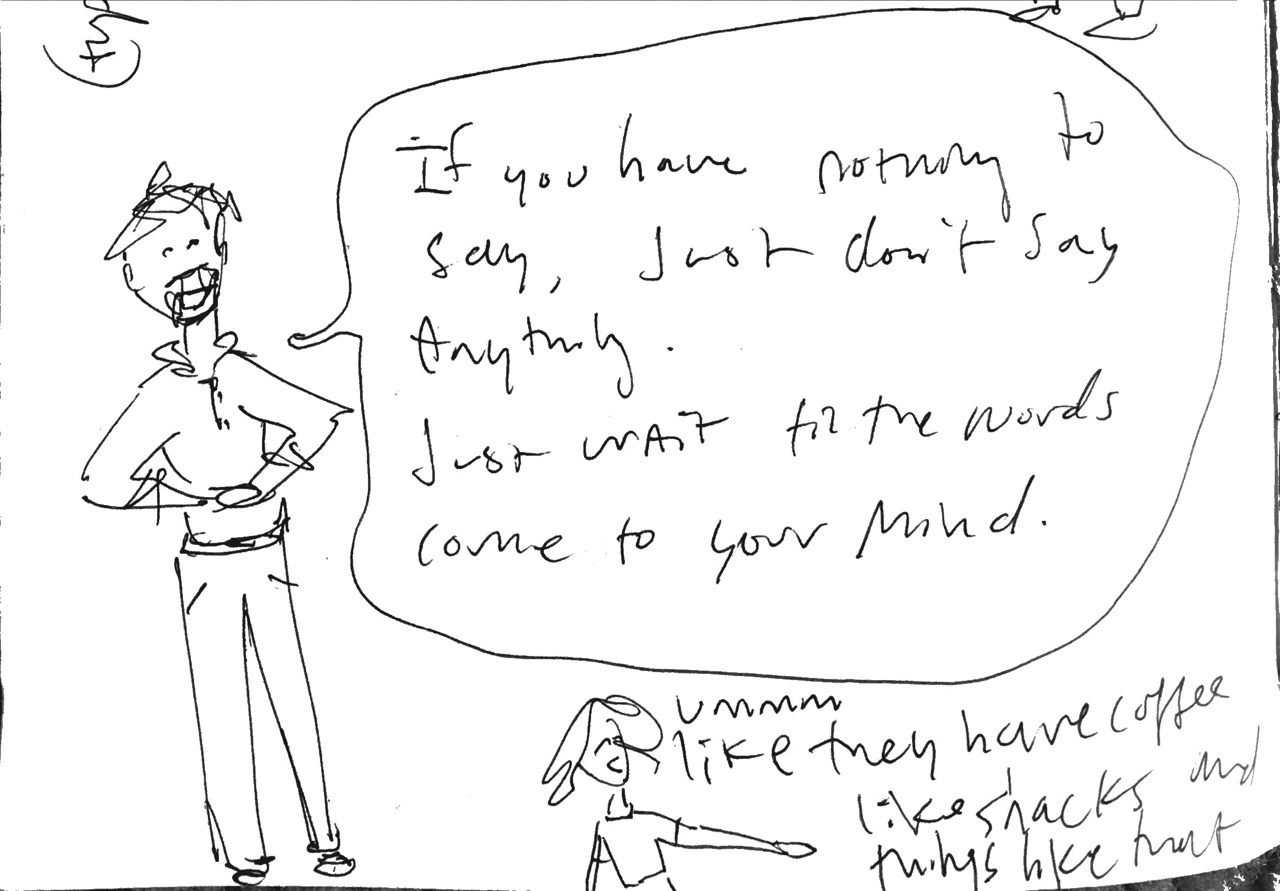 If you have nothing to
say, Just don't say
Anything.
Just wait til the words
come to your mind.
ummmm
like they have coffee
like snacks and
things like that